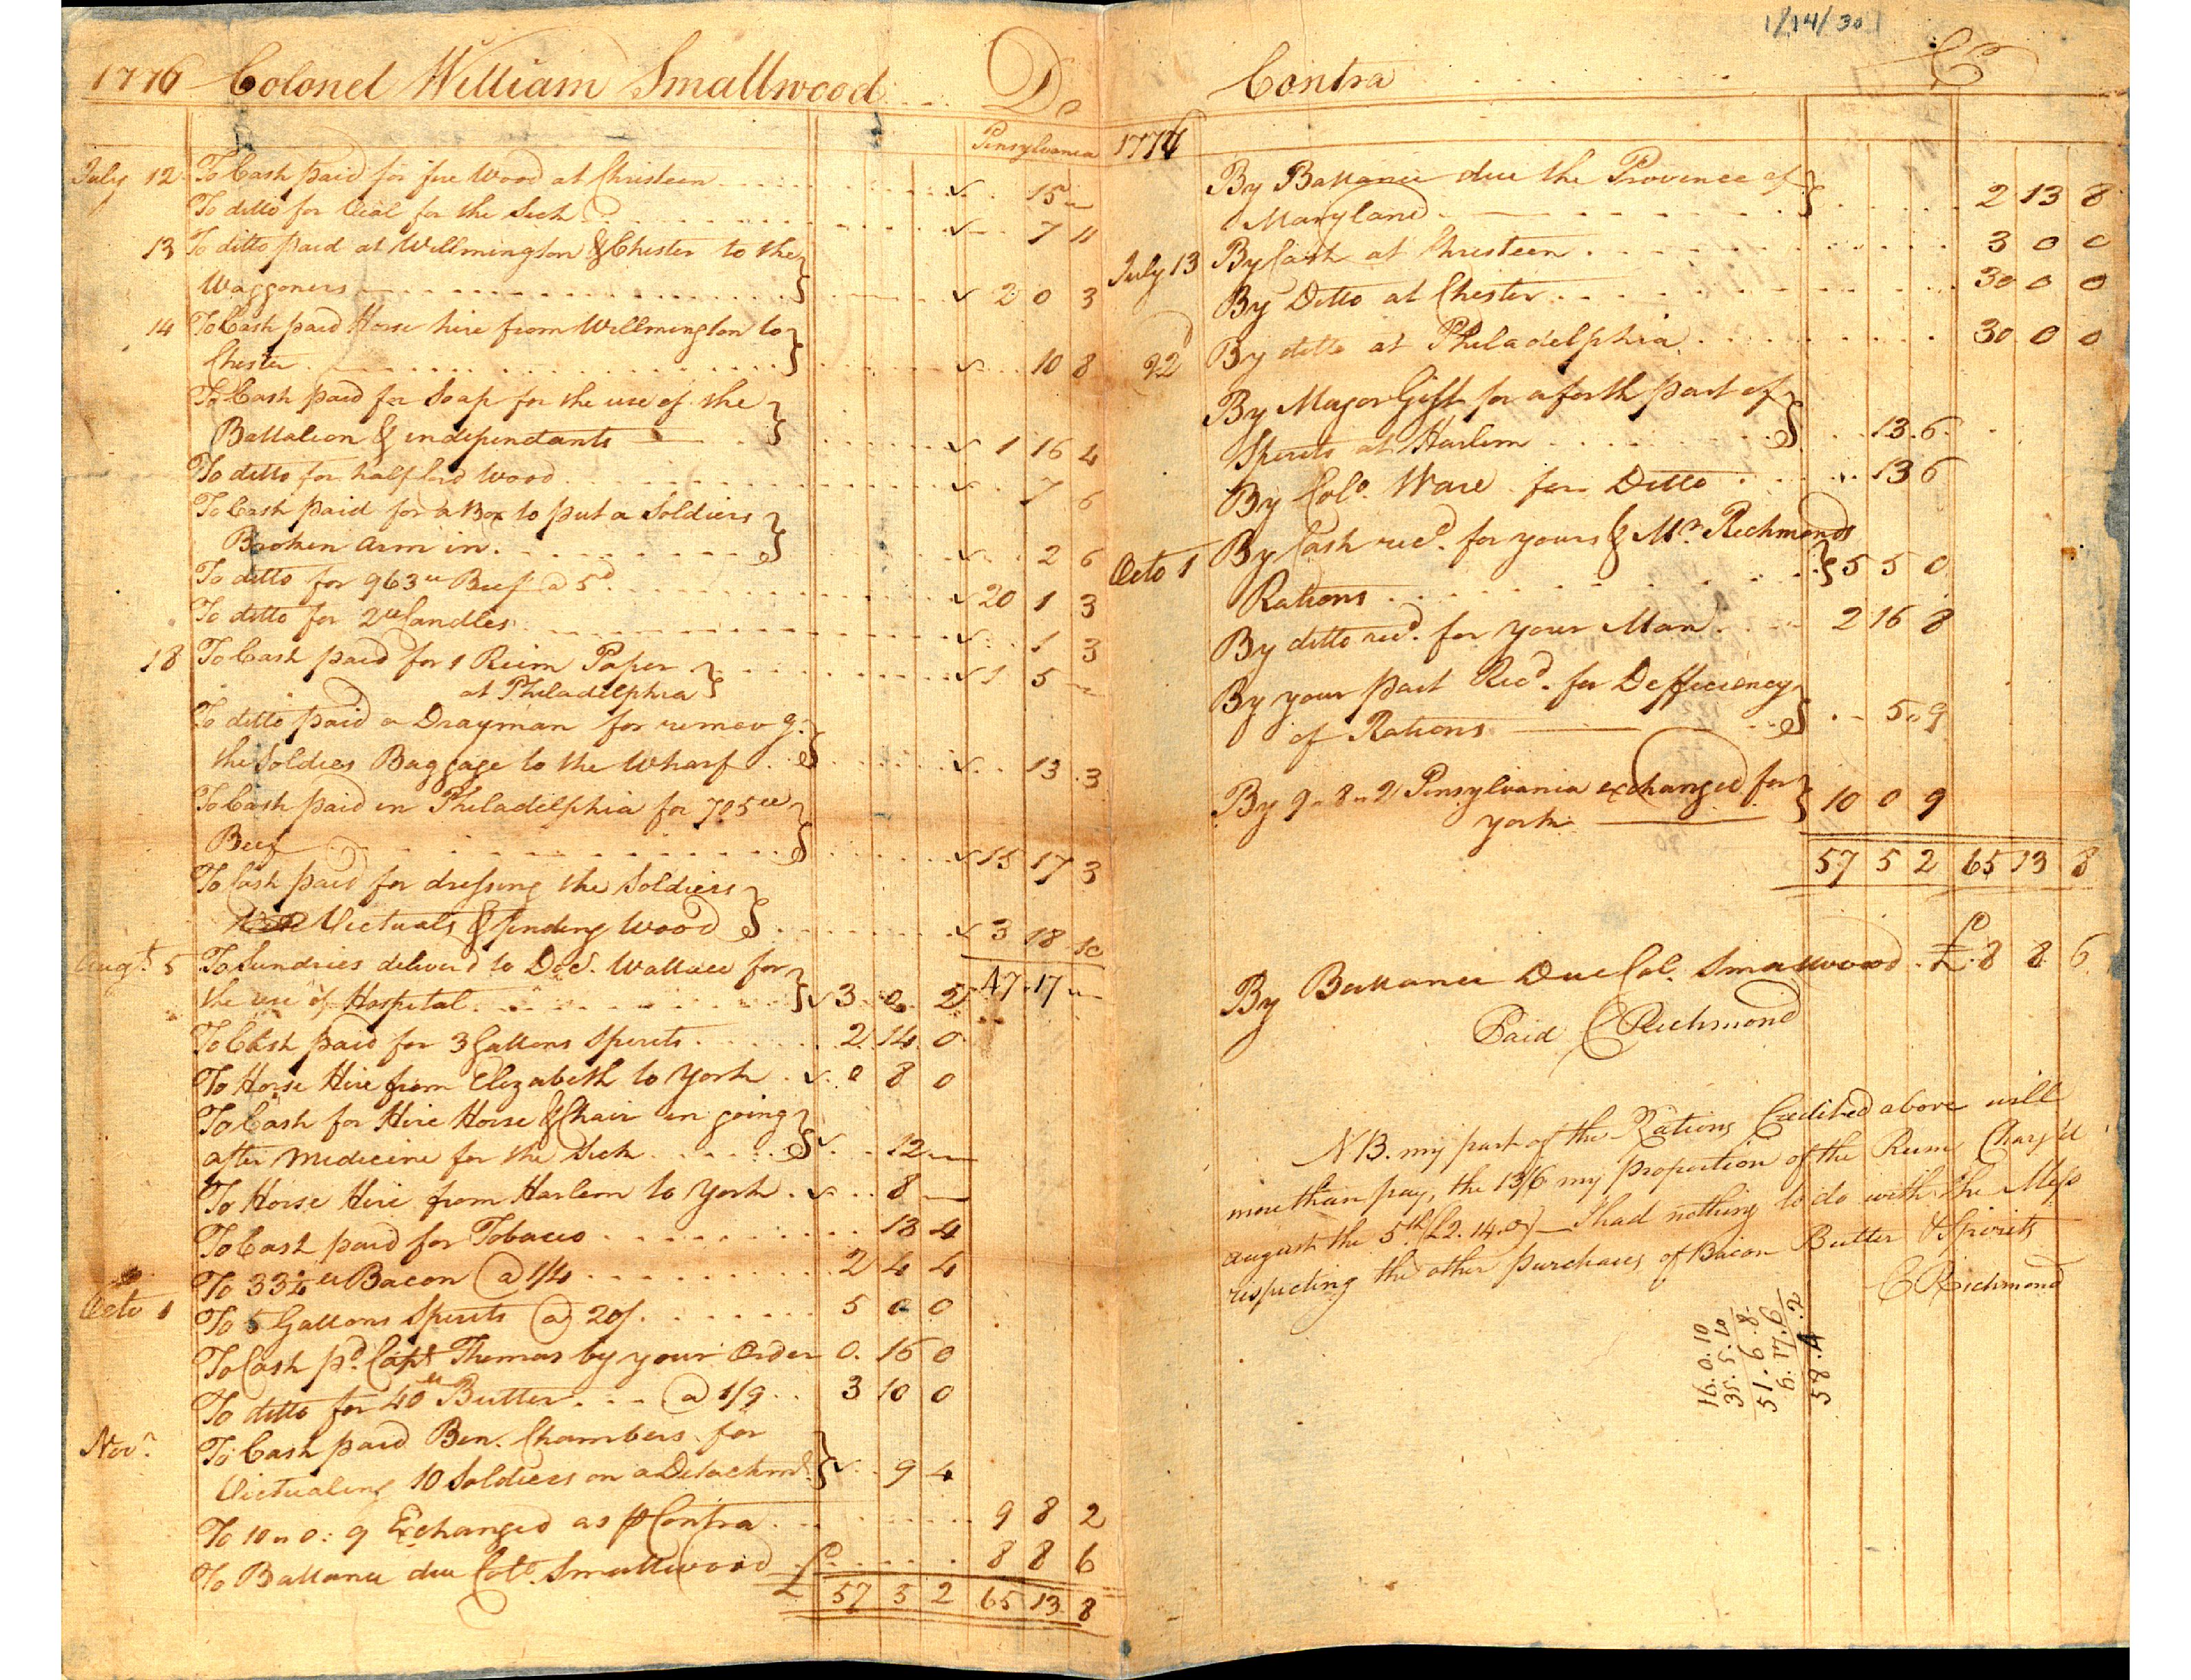 1776 Colonel William Smallwood Dr
Pinsylvania
July 12 To Cash paid for fire Wood at Christeen 15 "
To ditto for Veal for the Sick 7 11
13 To ditto paid at Willmington & Chester to the
Waggoners 2 0 3
14 To Cash paid Horse hire from Willmington to
Chester 10 8
To Cash paid for Soap for the use of the
Battalion & independants 1 16 4
To ditto for half Cord Wood 7 6
To Cash paid for a Box to put a Soldiers
Broken Arm in 2 6
To ditto for 963 lb Beef @ 5d 20 1 3
To ditto for 2 lb Candles 1 3
18 To Cash paid for 1 Reim Paper
at Philadelphia 1 5 "
To ditto paid a Drayman for remov g.
the Soldies Baggage to the Wharf 13 3
To Cash paid in Philadelphia for 705 lb
Beef 15 17 3
To Cash paid for dressing the Soldiers
Victuals & finding Wood 3 18 10
47 17 "
Augt. 5 To Sundries deliver'd to Docr. Wallace for
the use of Hospital 3 0 2
To Cash paid for 3 Gallons Spirits 2 14 0
To Horse Hire from Elizabeth to York 0 8 0
To Cash for Hire Horse & Chair in going
after Medicine for the Sick 12 "
To Horse Hire from Harlem to York 8 "
To Cash paid for Tobacco 13 4
To 33 1/4 lb Bacon @ 1/4 2 4 4
Octo 1 To 5 Gallons Spirits @ 20/ 5 0 0
To Cash pd. Capt Thomas by your Order 0 16 0
To ditto for 40 lb Butter @ 1/9 3 10 0
Novr. To Cash paid Ben. Chambers for
Victualing 10 Soldiers on a Detachmt. 9 4
To 10 " 0 : 9 Exchanged as ⅌ Contra 9 8 2
To Ballance due Colo. Smallwood 8 8 6
£ 57 5 2 65 13 8
1/14/30
Contra Cr
1776
By Ballance due the Provence of
Maryland 2 13 8
July 13 By Cash at Christeen 3 0 0
By Ditto at Chester 30 0 0
22d By ditto at Philadelphia 30 0 0
By Major Gist for a forth part of
Spirits at Harlem 13 6
By Colo. Ware for Ditto 13 6
Octo 1 By Cash recd. for yours & Mr. Richmonds
Rations 5 5 0
By ditto recd. for your Man 2 16 8
By your part Recd. for Defficiency
of Rations 5 " 9
By 9 " 8 " 2 Pinsylvania exchanged for
york 10 0 9
57 5 2 65 13 8
By Ballance Due Col. Smallwood £ 8 8 6
Paid C Richmond
NB. my part of the Rations Credited above will
more than pay, the 13/6 my proportion of the Rum Charg'd
august the 5th (£2.14.0) I had nothing to do with the Mess
respecting the other purchases of Bacon Butter & Spirits
C Richmond
16.0.10
35.5.10
51.6.8
6.17.6
58.4.2